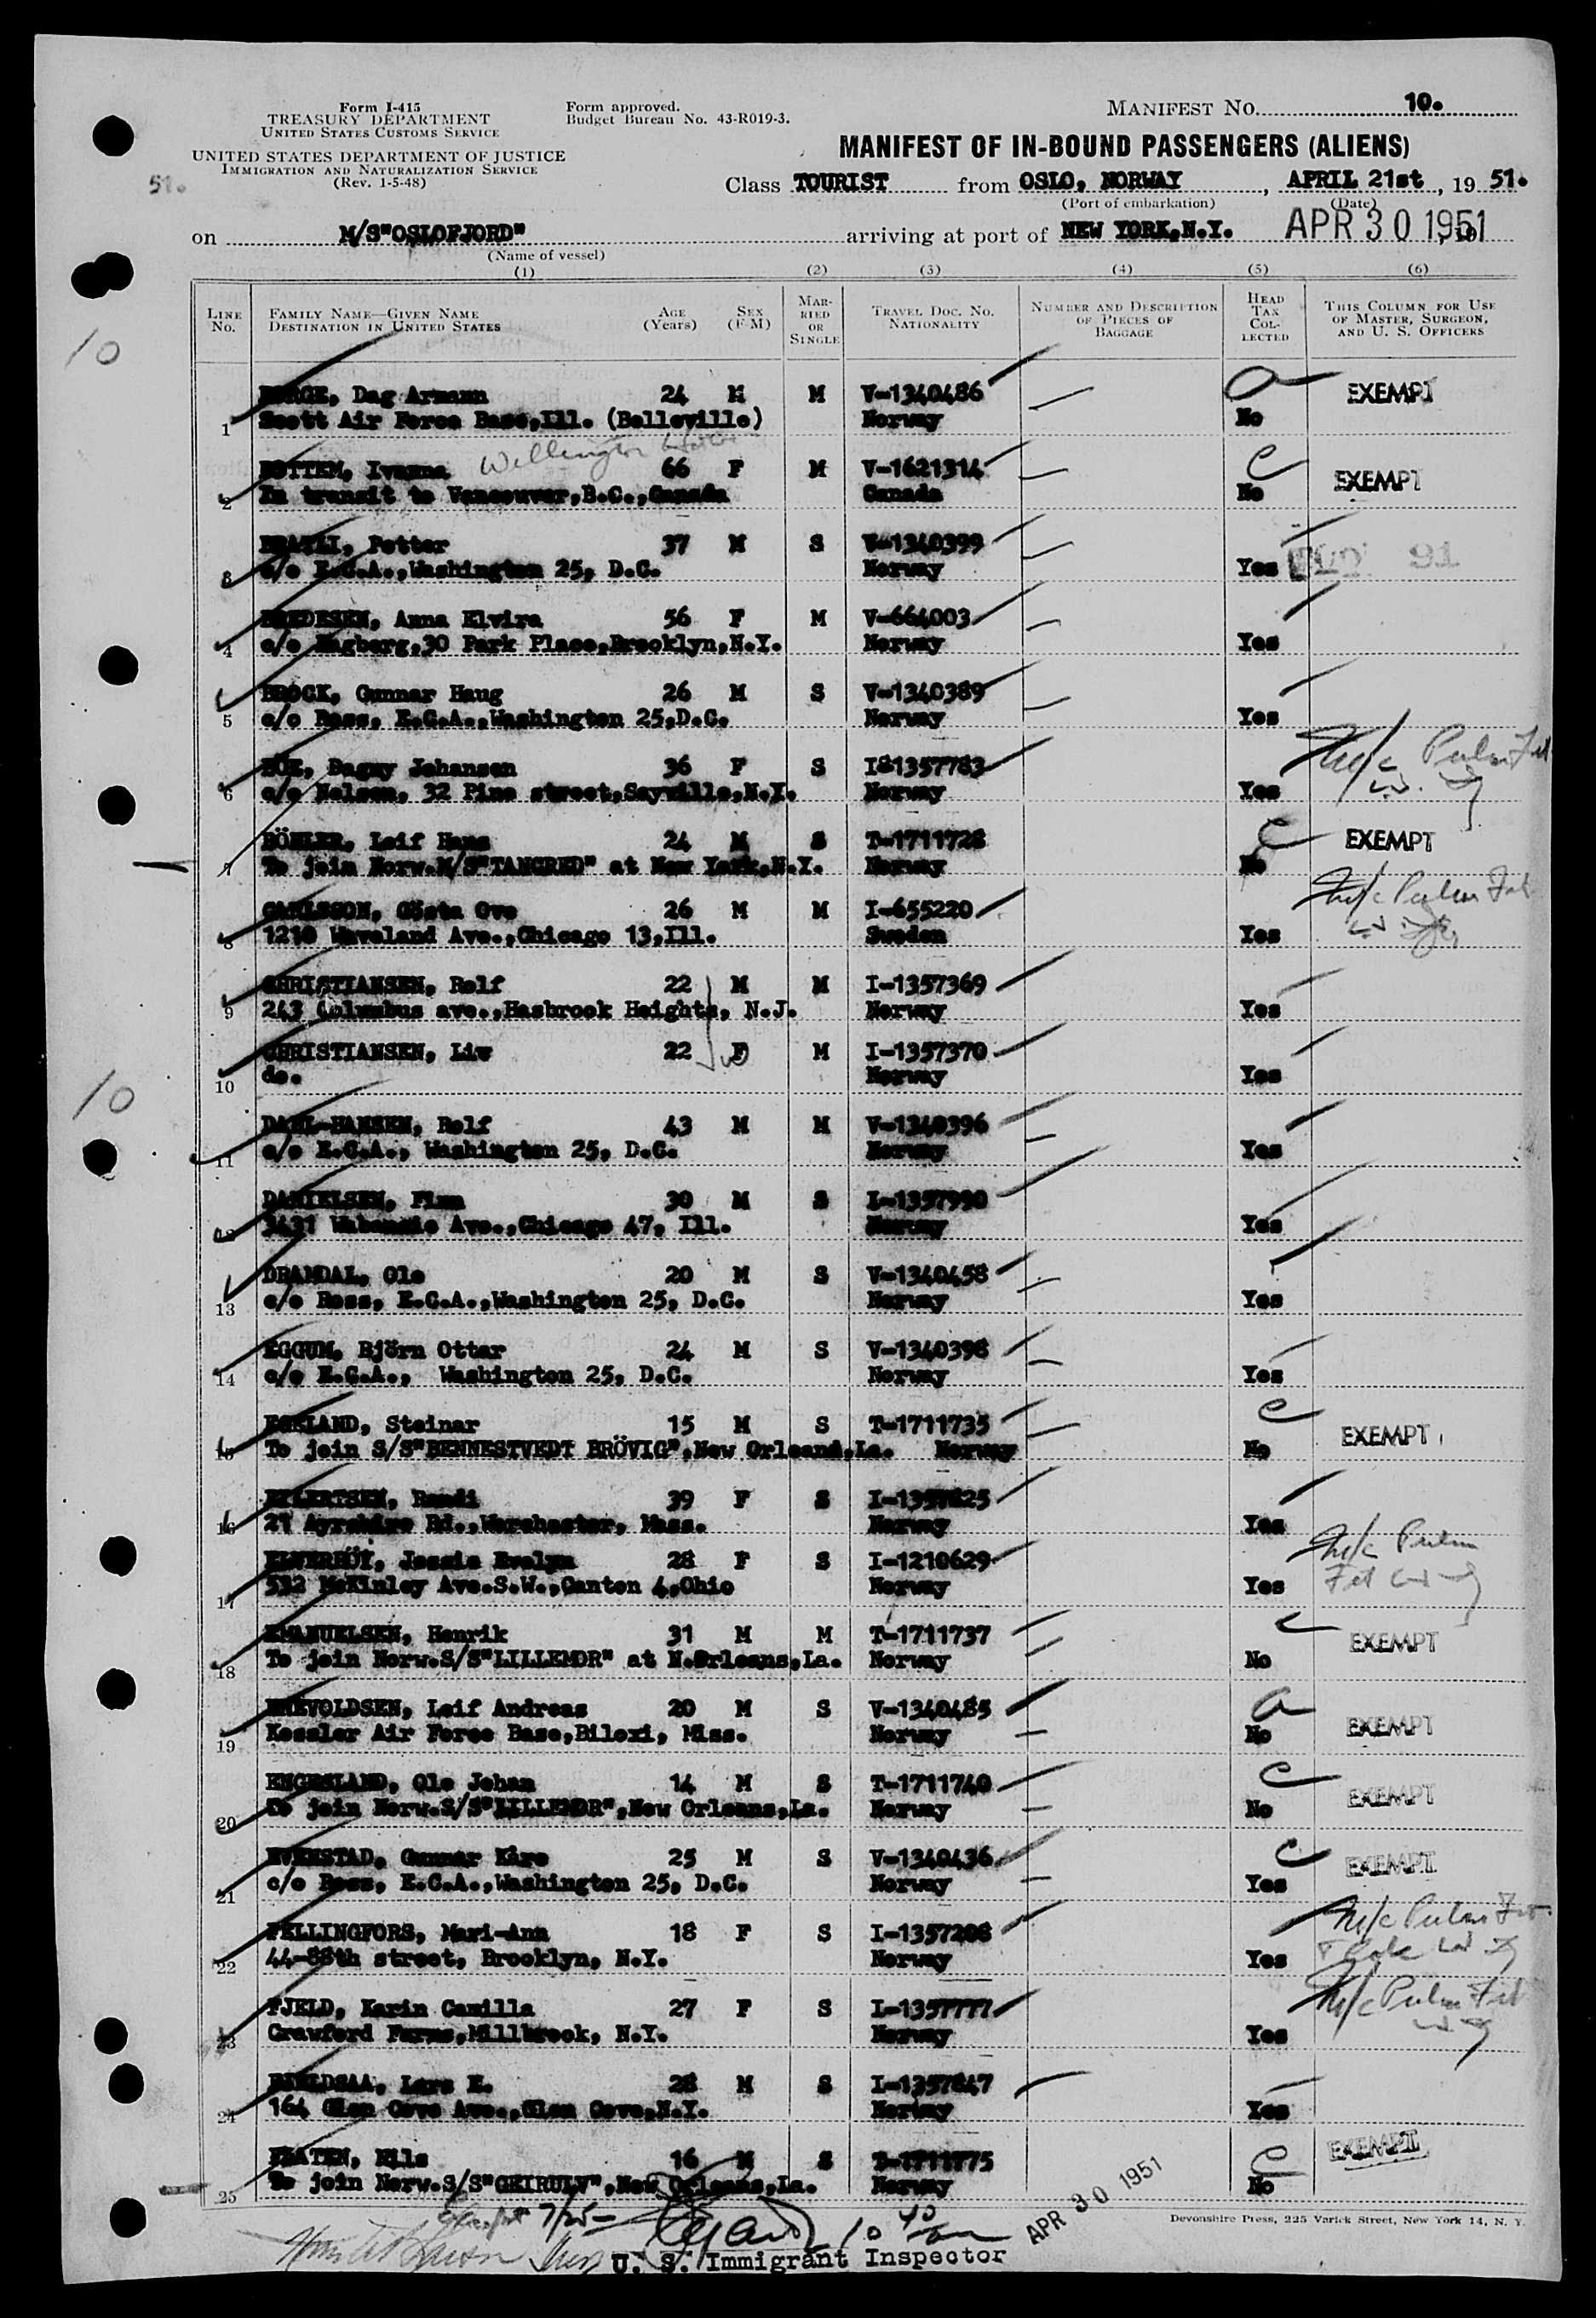 Form I-415
TREASURY DEPARTMENT
UNITED STATES CUSTOMS SERVICE
UNITED STATES DEPARTMENT OF JUSTICE
IMMIGRATION AND NATURALIZATION SERVICE
(Rev. 1-5-48)
Form approved.
Budget Bureau No. 43-R019-3.
MANIFEST NO. 10.
MANIFEST OF IN-BOUND PASSENGERS (ALIENS)
51.
Class TOURIST from OSLO, NORWAY, APRIL 21st, 19 51.
(Port of embarkation) (Date)
on M/S"OSLOFJORD" arriving at port of NEW YORK,N.Y. APR 30 1951
(Name of vessel)
(1) (2) (3) (4) (5) (6)
LINE NO.
FAMILY NAME—GIVEN NAME
DESTINATION IN UNITED STATES
AGE (Years)
SEX (F-M)
MARRIED OR SINGLE
TRAVEL DOC. NO.
NATIONALITY
NUMBER AND DESCRIPTION OF PIECES OF BAGGAGE
HEAD TAX COLLECTED
THIS COLUMN FOR USE OF MASTER, SURGEON, AND U. S. OFFICERS
10
Dag Armann 24 M M V-1340486 EXEMPT
1 Scott Air Force Base,Ill. (Belleville) Norway No
Ivanna Wellington 66 F M V-1621314 EXEMPT
2 In transit to Vancouver,B.C.,Canada Canada No
Petter 37 M S V-1340399
3 c/o E.C.A.,Washington 25, D.C. Norway Yes 91
BREDESEN, Anna Elvira 56 F M V-664003
4 c/o Hagberg,30 Park Place,Brooklyn,N.Y. Norway Yes
BROCK, Gunnar Haug 26 M S V-1340389
5 c/o Ross, E.C.A.,Washington 25,D.C. Norway Yes
Dagny Johansen 36 F S I81357783
6 c/o Nelson, 32 Pine street,Sayville,N.Y. Norway Yes
BÖHLER, Leif Hans 24 M S T-1711728 EXEMPT
7 To join Norw.M/S"TANCRED" at New York,N.Y. Norway No
CARLSSON, Gösta Ove 26 M M I-655220
8 1210 Waveland Ave.,Chicago 13,Ill. Sweden Yes
CHRISTIANSEN, Rolf 22 M M I-1357369
9 243 Columbus ave.,Hasbrook Heights, N.J. Norway Yes
CHRISTIANSEN, Liv 22 F M I-1357370
10 do. Norway Yes
10
DAHL-HANSEN, Rolf 43 M M V-1340396
11 c/o E.C.A., Washington 25, D.C. Norway Yes
DANIELSEN, Finn 30 M S I-1357990
12 3431 Ave.,Chicago 47, Ill. Norway Yes
DRAMDAL, Ole 20 M S V-1340458
13 c/o Ross, E.C.A.,Washington 25, D.C. Norway Yes
EGGUM, Björn Ottar 24 M S V-1340398
14 c/o E.C.A., Washington 25, D.C. Norway Yes
EGELAND, Steinar 15 M S T-1711735 EXEMPT
15 To join S/S"BENNESTVEDT BRÖVIG",New Orleans,La. Norway No
EILERTSEN, Randi 39 F S
16 27 Ayrshire Rd.,Worchester, Mass. Norway Yes
Jessie Evelyn 28 F S I-1210629
17 532 McKinley Ave.S.W.,Canton 4,Ohio Norway Yes
EMANUELSEN, Henrik 31 M M T-1711737 EXEMPT
18 To join Norw.S/S"LILLEMOR" at N.Orleans,La. Norway No
ENEVOLDSEN, Leif Andreas 20 M S V-1340485 EXEMPT
19 Kessler Air Force Base,Biloxi, Miss. Norway No
ENGESLAND, Ole Johan 14 M S T-1711740 EXEMPT
20 To join Norw.S/S"LILLEMOR",New Orleans,La. Norway No
Gunnar Kåre 25 M S V-1340436 EXEMPT
21 c/o Ross, E.C.A.,Washington 25, D.C. Norway Yes
FELLINGFORS, Mari-Ann 18 F S I-1357208
22 44-88th street, Brooklyn, N.Y. Norway Yes
FJELD, Karin Camilla 27 F S I-1357777
23 Crawford Farms,Millbrook, N.Y. Norway Yes
FJELDSAA, Lars E. 28 M S I-1357847
24 164 Glen Cove Ave.,Glen Cove,N.Y. Norway Yes
FLATEN, Nils 16 M S EXEMPT
25 To join Norw.S/S"GEIRULV",New Orleans,La. Norway No
APR 30 1951
Devonshire Press, 225 Varick Street, New York 14, N. Y.
U. S. Immigrant Inspector